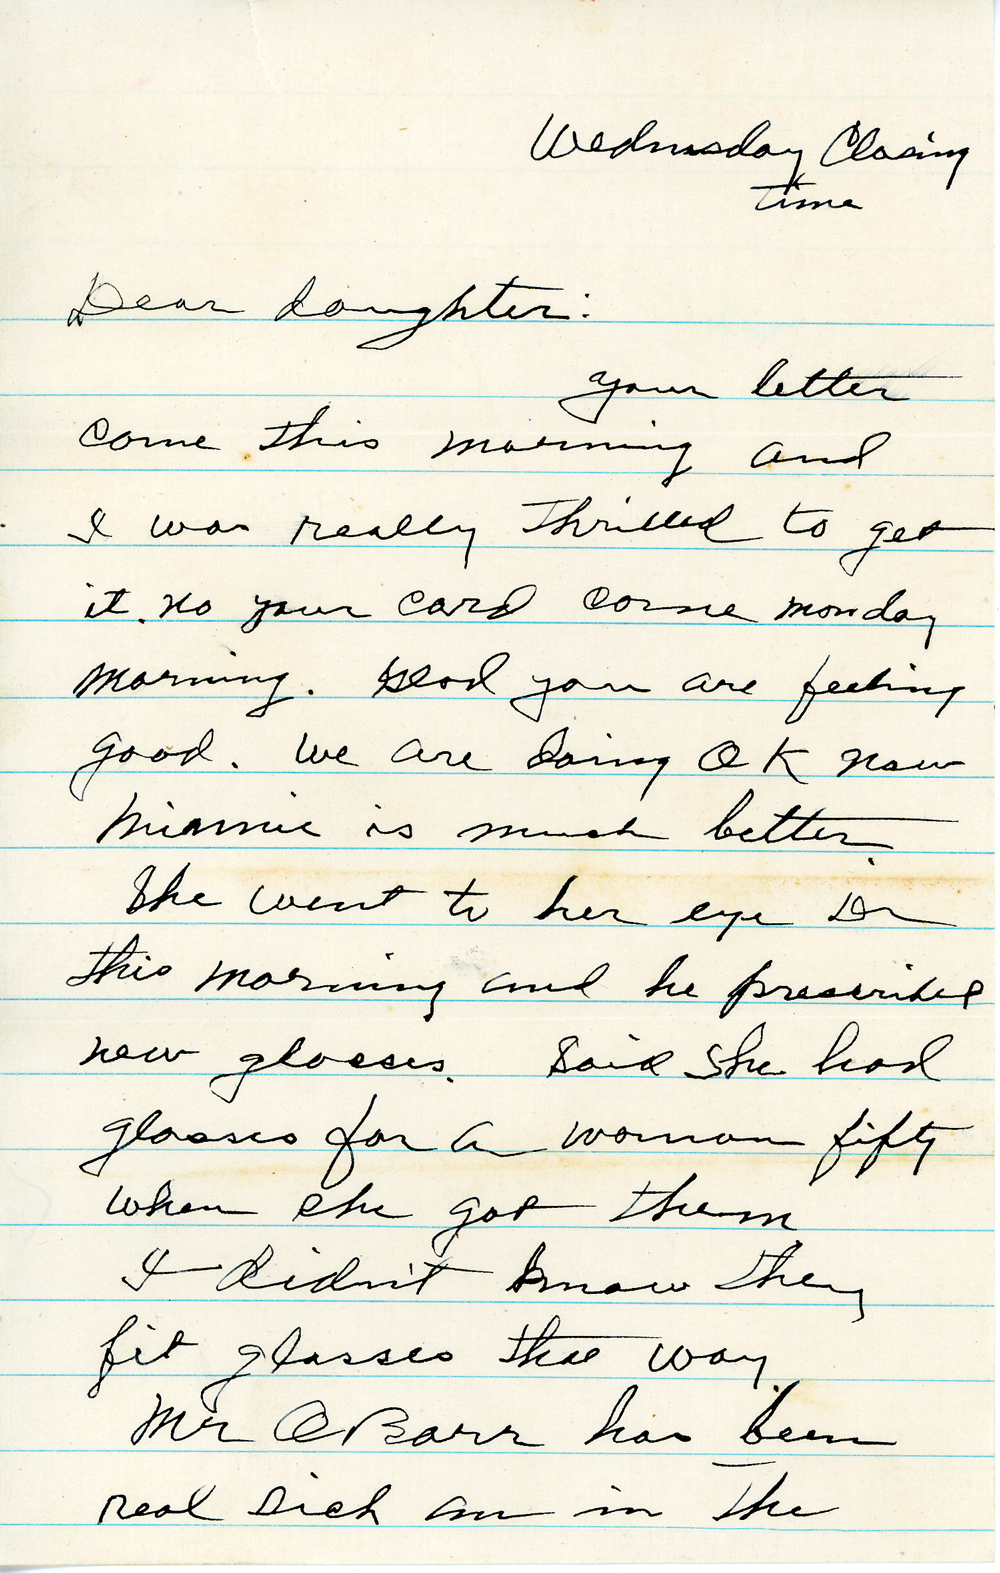 Wednesday Closing
time
Dear daughter:
your letter
come this morning and
I was really thrilled to get
it. No your card come monday
morning. Glad you are feeling
good. We are doing OK now
Minnie is much better.
She went to her eye Dr
this morning and he prescribed
new glasses. Said She had
glasses for a woman fifty
when she got them
I didn't know they
fit glasses that way.
Mr OBarr has been
real sick an in the